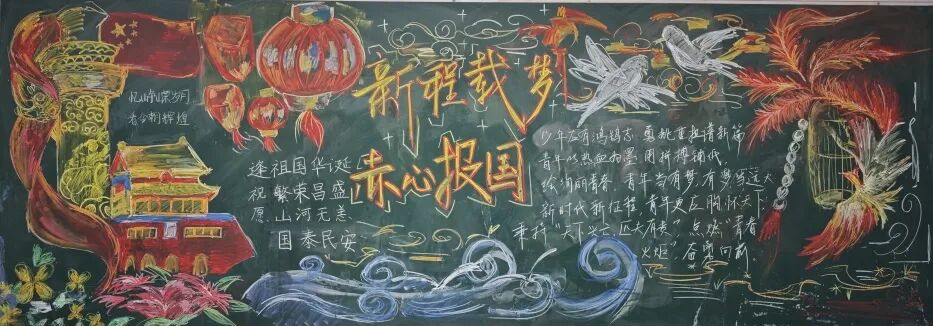 新程载梦
赤心报国
忆峥嵘岁月
看今朝辉煌
逢祖国华诞
祝繁荣昌盛
愿山河无恙
国泰民安
少年应有鸿鹄志 勇挑重担谱新篇
青年以热血为墨 用拼搏铺纸
绘绚丽青春。青年当有梦,有梦当远大
新时代新征程,青年更应胸怀天下
秉持“天下 大有 ”点燃“青春
火炬”奋勇向前